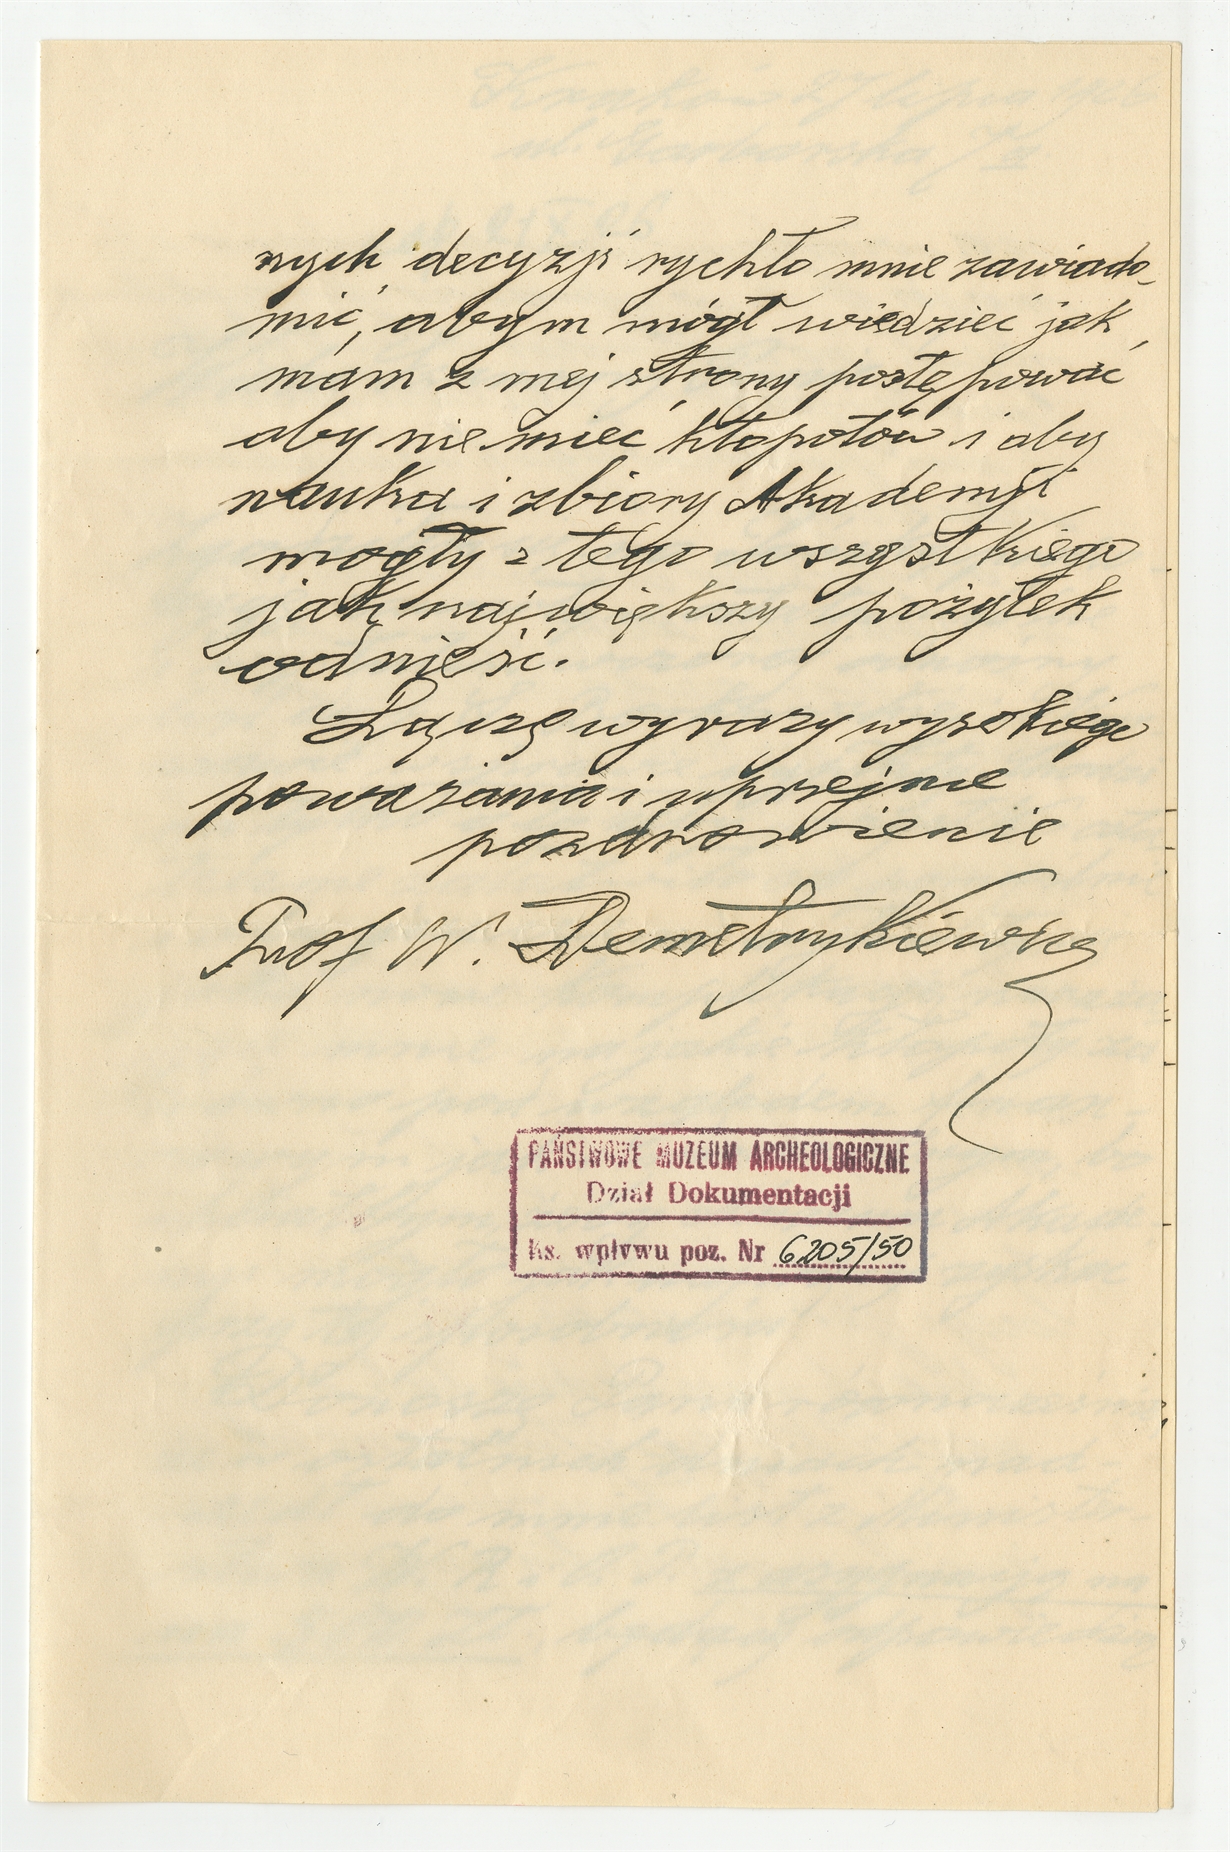 nych decyzji rychło mnie zawiado-
mić, abym mógł wiedzieć jak
mam z mej strony postępować
aby nie mieć kłopotów i aby
nauka i zbiory Akademji
mogły z tego wszystkiego
jak największy pożytek
odnieść.
Łączę wyrazy wysokiego
poważania i uprzejme
pozdrowienie
Prof W. Demetrykiewicz
PAŃSTWOWE MUZEUM ARCHEOLOGICZNE
Dział Dokumentacji
Ks. wpływu poz. Nr 6205/50